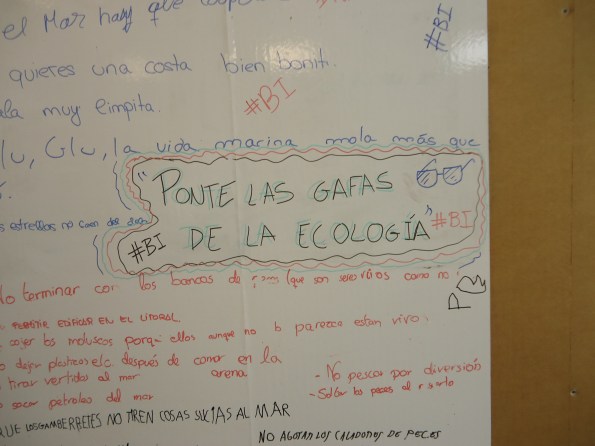 el Mar hay que
#BI
quieres una costa bien bonit
#BI
muy limpita.
Glu, la vida marina mola más que
"PONTE LAS GAFAS
DE LA ECOLOGÍA"
#BI
#BI
estrellas no caen del
terminar con los bancos de (que son seres vivos como no
EDIFICAR EN EL LITORAL
cojer los moluscos porqe ellos aunque no lo parezca estan vivo.
dejar plasticos etc después de comer en la
arena
tirar vertidos al mar
sacar petroleo del mar
- No pescar por diversión
- Soltar los peces al
QUE LOS GAMBERRETES NO TIREN COSAS SUCIAS AL MAR
NO AGOTAR LOS CALADONES DE PECES